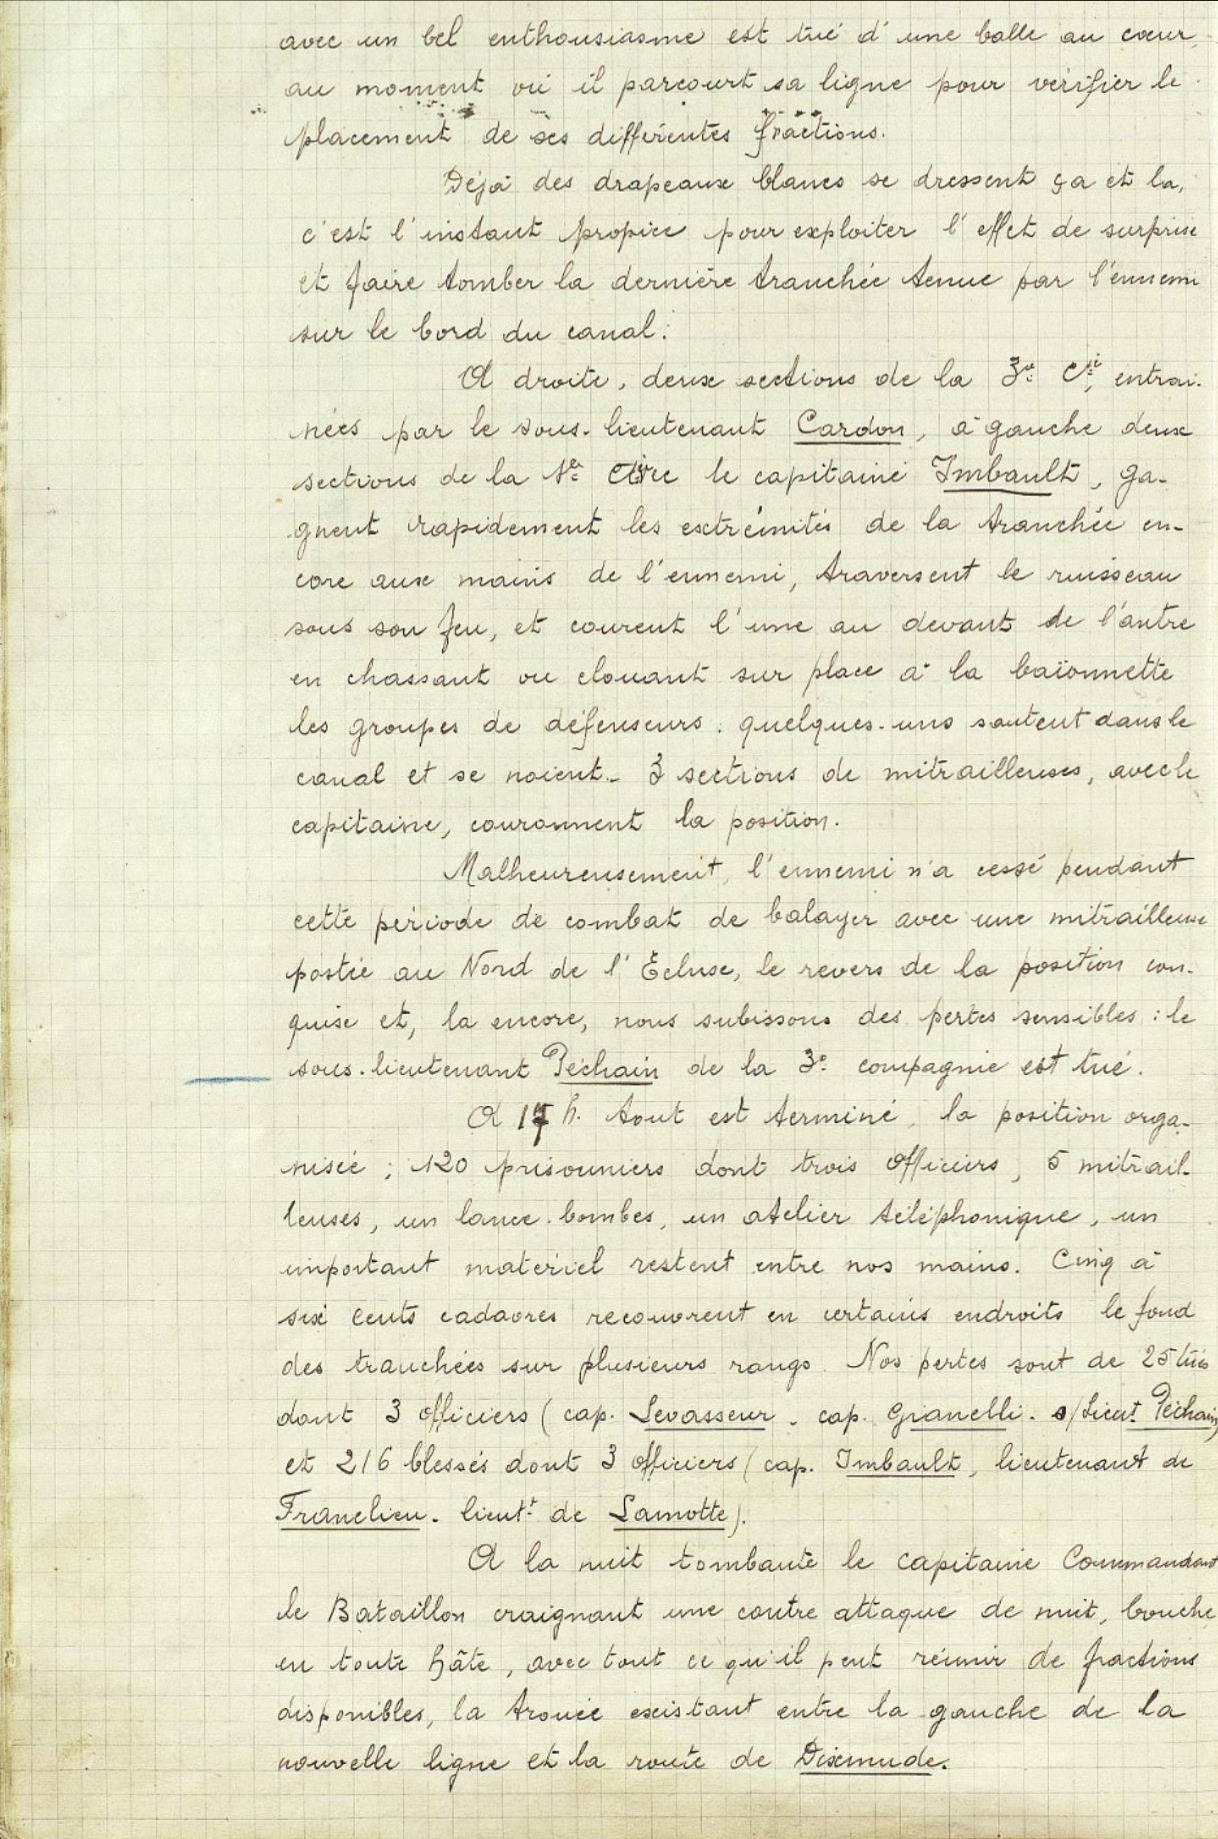 avec un bel enthousiasme est tué d'une balle au cœur,
au moment où il parcourt sa ligne pour vérifier le
placement de ses différentes fractions.
Déjà des drapeaux blancs se dressent ça et là,
c'est l'instant propice pour exploiter l'effet de surprise
et faire tomber la dernière tranchée tenue par l'ennemi
sur le bord du canal.
A droite, deux sections de la 3e Cie, entraî-
nées par le sous-lieutenant Cardon, à gauche deux
sections de la 1e le capitaine Imbault, ga-
gnent rapidement les extrémités de la tranchée en-
core aux mains de l'ennemi, traversent le ruisseau
sous son feu, et courent l'une au devant de l'autre
en chassant ou clouant sur place à la baïonnette
les groupes de défenseurs : quelques-uns sautent dans le
canal et se noient - 3 sections de mitrailleuses, avec le
capitaine, couronnent la position.
Malheureusement, l'ennemi n'a cessé pendant
cette période de combat de balayer avec une mitrailleuse
postée au Nord de l'Écluse, le revers de la position con-
quise et, là encore, nous subissons des pertes sensibles : le
sous-lieutenant Péchain de la 3e compagnie est tué.
A 17 h. tout est terminé, la position orga-
nisée ; 120 prisonniers dont trois officiers, 5 mitrail-
leuses, un lance-bombes, un atelier téléphonique, un
important matériel restent entre nos mains. Cinq à
six cents cadavres recouvrent en certains endroits le fond
des tranchées sur plusieurs rangs. Nos pertes sont de 25 tués
dont 3 officiers (cap. Levasseur - cap. Granelli - s/Lieut Péchain)
et 216 blessés dont 3 officiers (cap. Imbault, lieutenant de
Franclieu - lieutt de Lamotte).
A la nuit tombante le capitaine Commandant
le Bataillon craignant une contre attaque de nuit, bouche
en toute hâte, avec tout ce qu'il peut réunir de fractions
disponibles, la trouée existant entre la gauche de la
nouvelle ligne et la route de Dixmude.